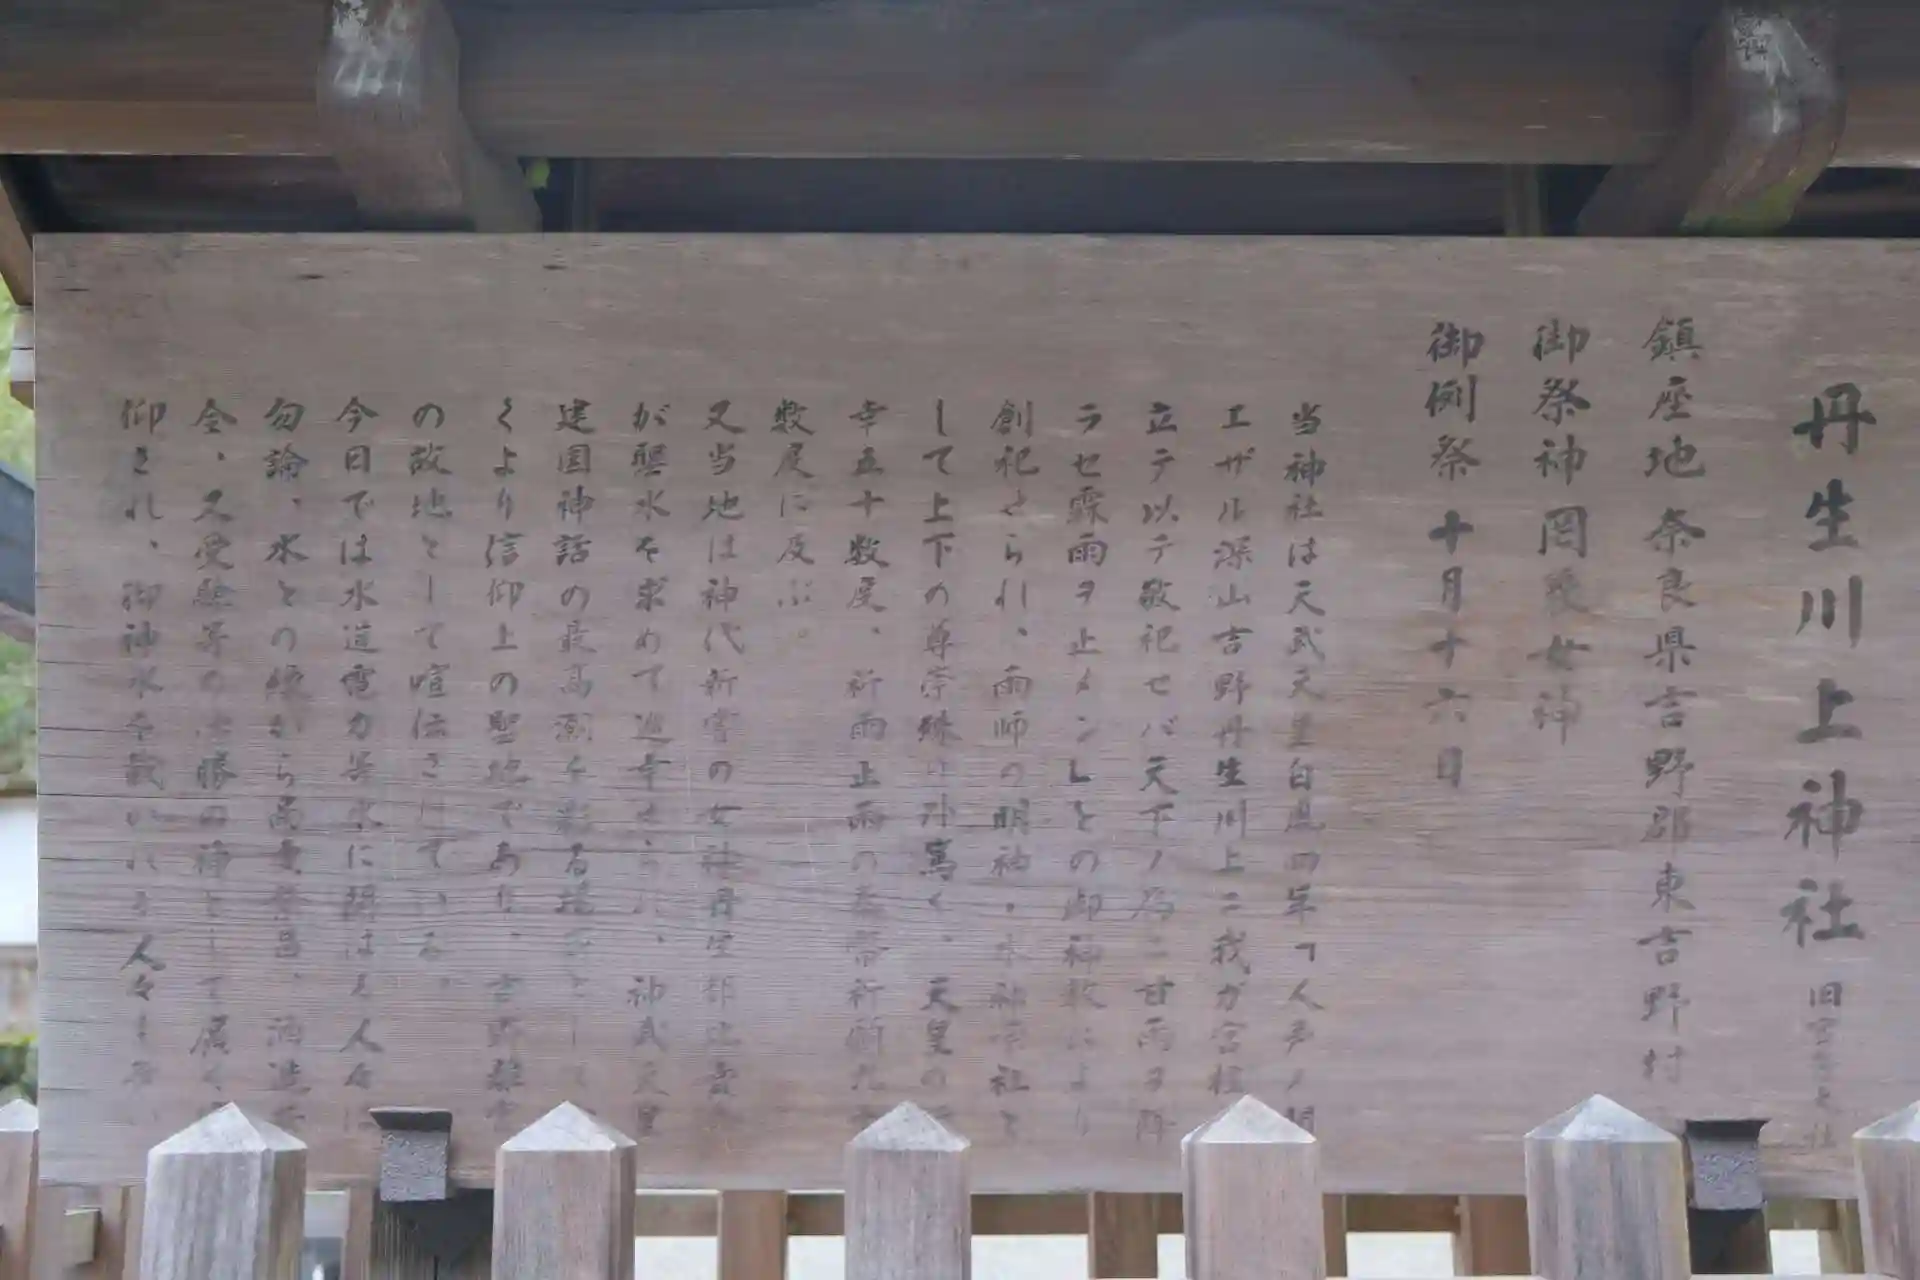 丹生川上神社 旧官幣大社
鎮座地 奈良県吉野郡東吉野村
御祭神 罔象女神
御例祭 十月十六日
当神社は天武天皇白鳳四年「人声ノ聞
エザル深山吉野丹生川上ニ我ガ宮柱
立テ以テ敬祀セバ天下ノ為ニ甘雨ヲ降
ラセ霖雨ヲ止メン」との御神教により
創祀せられ、雨師の明神・水神宗社と
して上下の尊崇殊に篤く、天皇の
幸五十数度、祈雨止雨の奉幣祈願九十
数度に及ぶ。
又当地は神代新嘗の女神丹生都比売
が聖水を求めて巡幸せられ、神武天皇
建国神話の最高潮を彩る場面として
くより信仰上の聖地であり、吉野離宮
の故地として喧伝されている。
今日では水道電力等水に関はる人々は
勿論、水との縁から商売繁昌、酒造安
全、又受験等の必勝の神として広く
仰され、御神水を戴かれる人々も